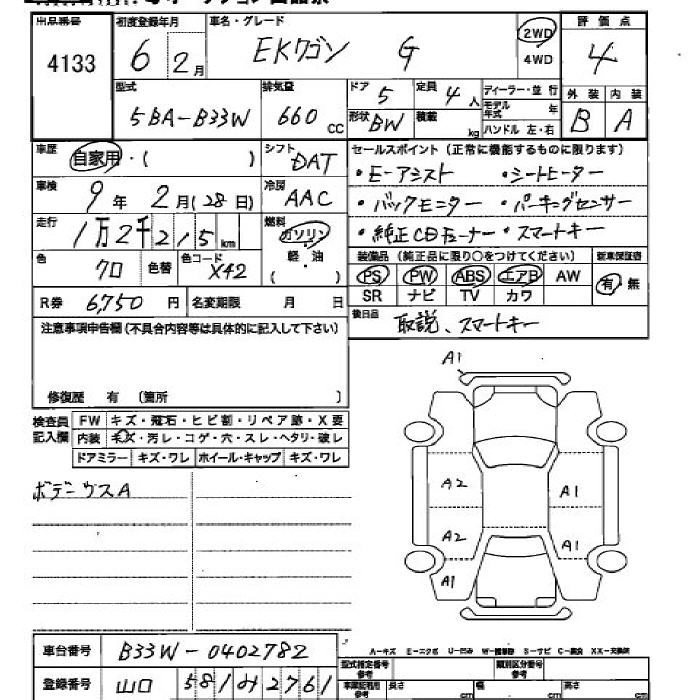 出品番号 初度登録年月 車名・グレード 評価点
4133 6 2月 EKワゴン G 2WD 4WD 4
型式 排気量 ドア 5 定員 4人 ディーラー・並行 外装 内装
5BA-B33W 660cc 形状 BW 積載 kg モデル年式 年 ハンドル 左・右 B A
車歴 自家用・( ) シフト DAT セールスポイント (正常に機能するものに限ります)
車検 9年 2月(28日) 冷房 AAC ・E-アシスト ・シートヒーター
・バックモニター ・パーキングセンサー
走行 1万2千215km 燃料 ガソリン 軽・油 ( ) ・純正CDチューナー ・スマートキー
色 クロ 色替 色コード X42 装備品 (純正品に限り○をつけてください) 新車保証書
PS PW ABS エアB AW 有 無
R券 6,750円 名変期限 月 日 SR ナビ TV カワ
注意事項申告欄(不具合内容等は具体的に記入して下さい) 後日品 取説、スマートキー
修復歴 有 〔箇所 〕
検査員記入欄 FW キズ・飛石・ヒビ割・リペア跡・X要
内装 キズ・汚レ・コゲ・穴・スレ・ヘタリ・破レ
ドアミラー キズ・ワレ ホイール・キャップ キズ・ワレ
A1
ボデーウスA
A2 A1
A2 A1
A1
A-キズ E-エクボ U-凹み W-補修跡 S-サビ C-腐食 XX-交換済
車台番号 B33W-0402782 型式指定番号 類別区分番号
登録番号 山口 581 ノ 2761 長さ cm 幅 cm 高さ cm